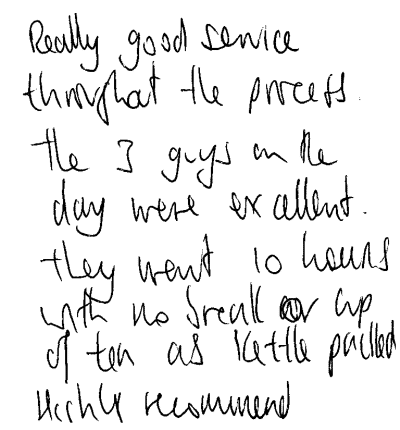 Really good service
throughout the process.
the 3 guys on the
day were excellent.
they went 10 hours
with no break or cup
of tea as kettle packed
Highly recommend